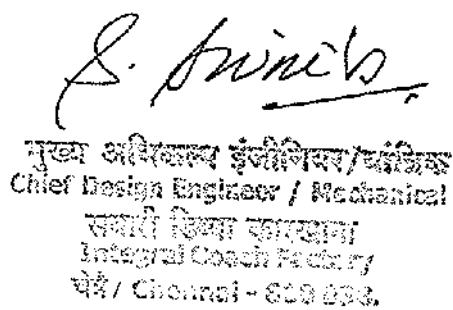 S. Srinivas
मुख्य अभिकल्प इंजीनियर/यांत्रिक
Chief Design Engineer / Mechanical
सवारी डिब्बा कारखाना
Integral Coach Factory
चेन्नै / Chennai - 600 038.